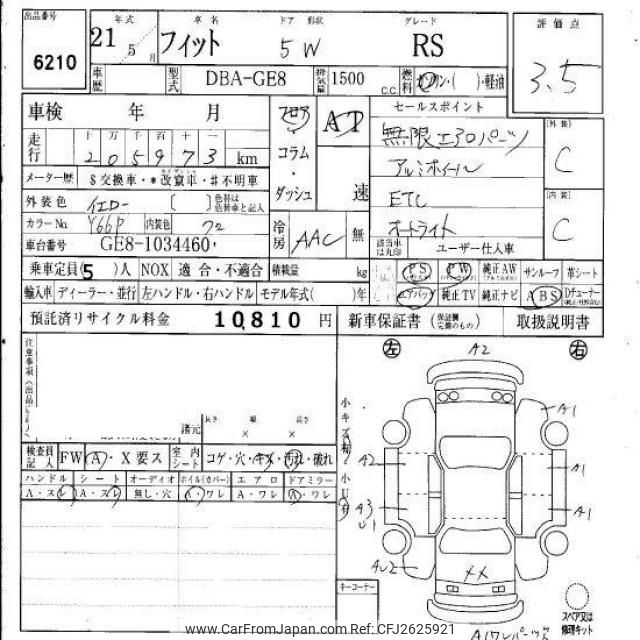 出品番号 年式 車名 ドア 形状 グレード 評価点
6210 21年 5月 フィット 5W RS 3.5
車歴 型式 DBA-GE8 排気量 1500 c.c. 燃料 ガソリン・( )・軽油
車検 年 月 フロア AT セールスポイント [外装]
走行 十 万 千 百 十 一 コラム・ 無限エアロパーツ C
205973 km ダッシュ 速 アルミホイール
メーター歴 $交換車・*改竄車・#不明車 ETC [内装]
外装色 イエロー [ ] 色替は依替車と記入 冷房 AAC 無 オートライト C
カラーNo. Y66P 内装色 クロ 該当車は丸印 ユーザー仕入車
車台番号 GE8-1034460
乗車定員(5)人 NOX 適合・不適合 積載量 kg PS PW 純正AW サンルーフ 革シート
輸入車 ディーラー・並行 左ハンドル・右ハンドル モデル年式( )年 エアバッグ 純正TV 純正ナビ ABS Dチューナー
預託済リサイクル料金 10,810 円 新車保証書 (保証欄完備のもの) 取扱説明書
左 A2 右
注意事項(出品
小キズ有 A1
諸元 長さ 幅 高さ
× ×
検査員記入 FW A・X要ス 室内シート コゲ・穴・キズ・汚れ・破れ A2 A1
ハンドル シート オーディオ ホイル(カバー) エアロ ドアミラー 小U有
A・スレ A・スレ 無し・穴 A・ワレ A・ワレ A・ワレ A3 A1
U1
AU2 XX
キーコーナー
スペア又は修理キット
www.CarFromJapan.com Ref: CFJ2625921